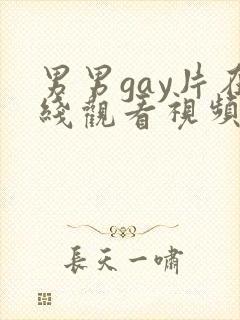 男男gay片在
綫觀看視頻
長天一嘯